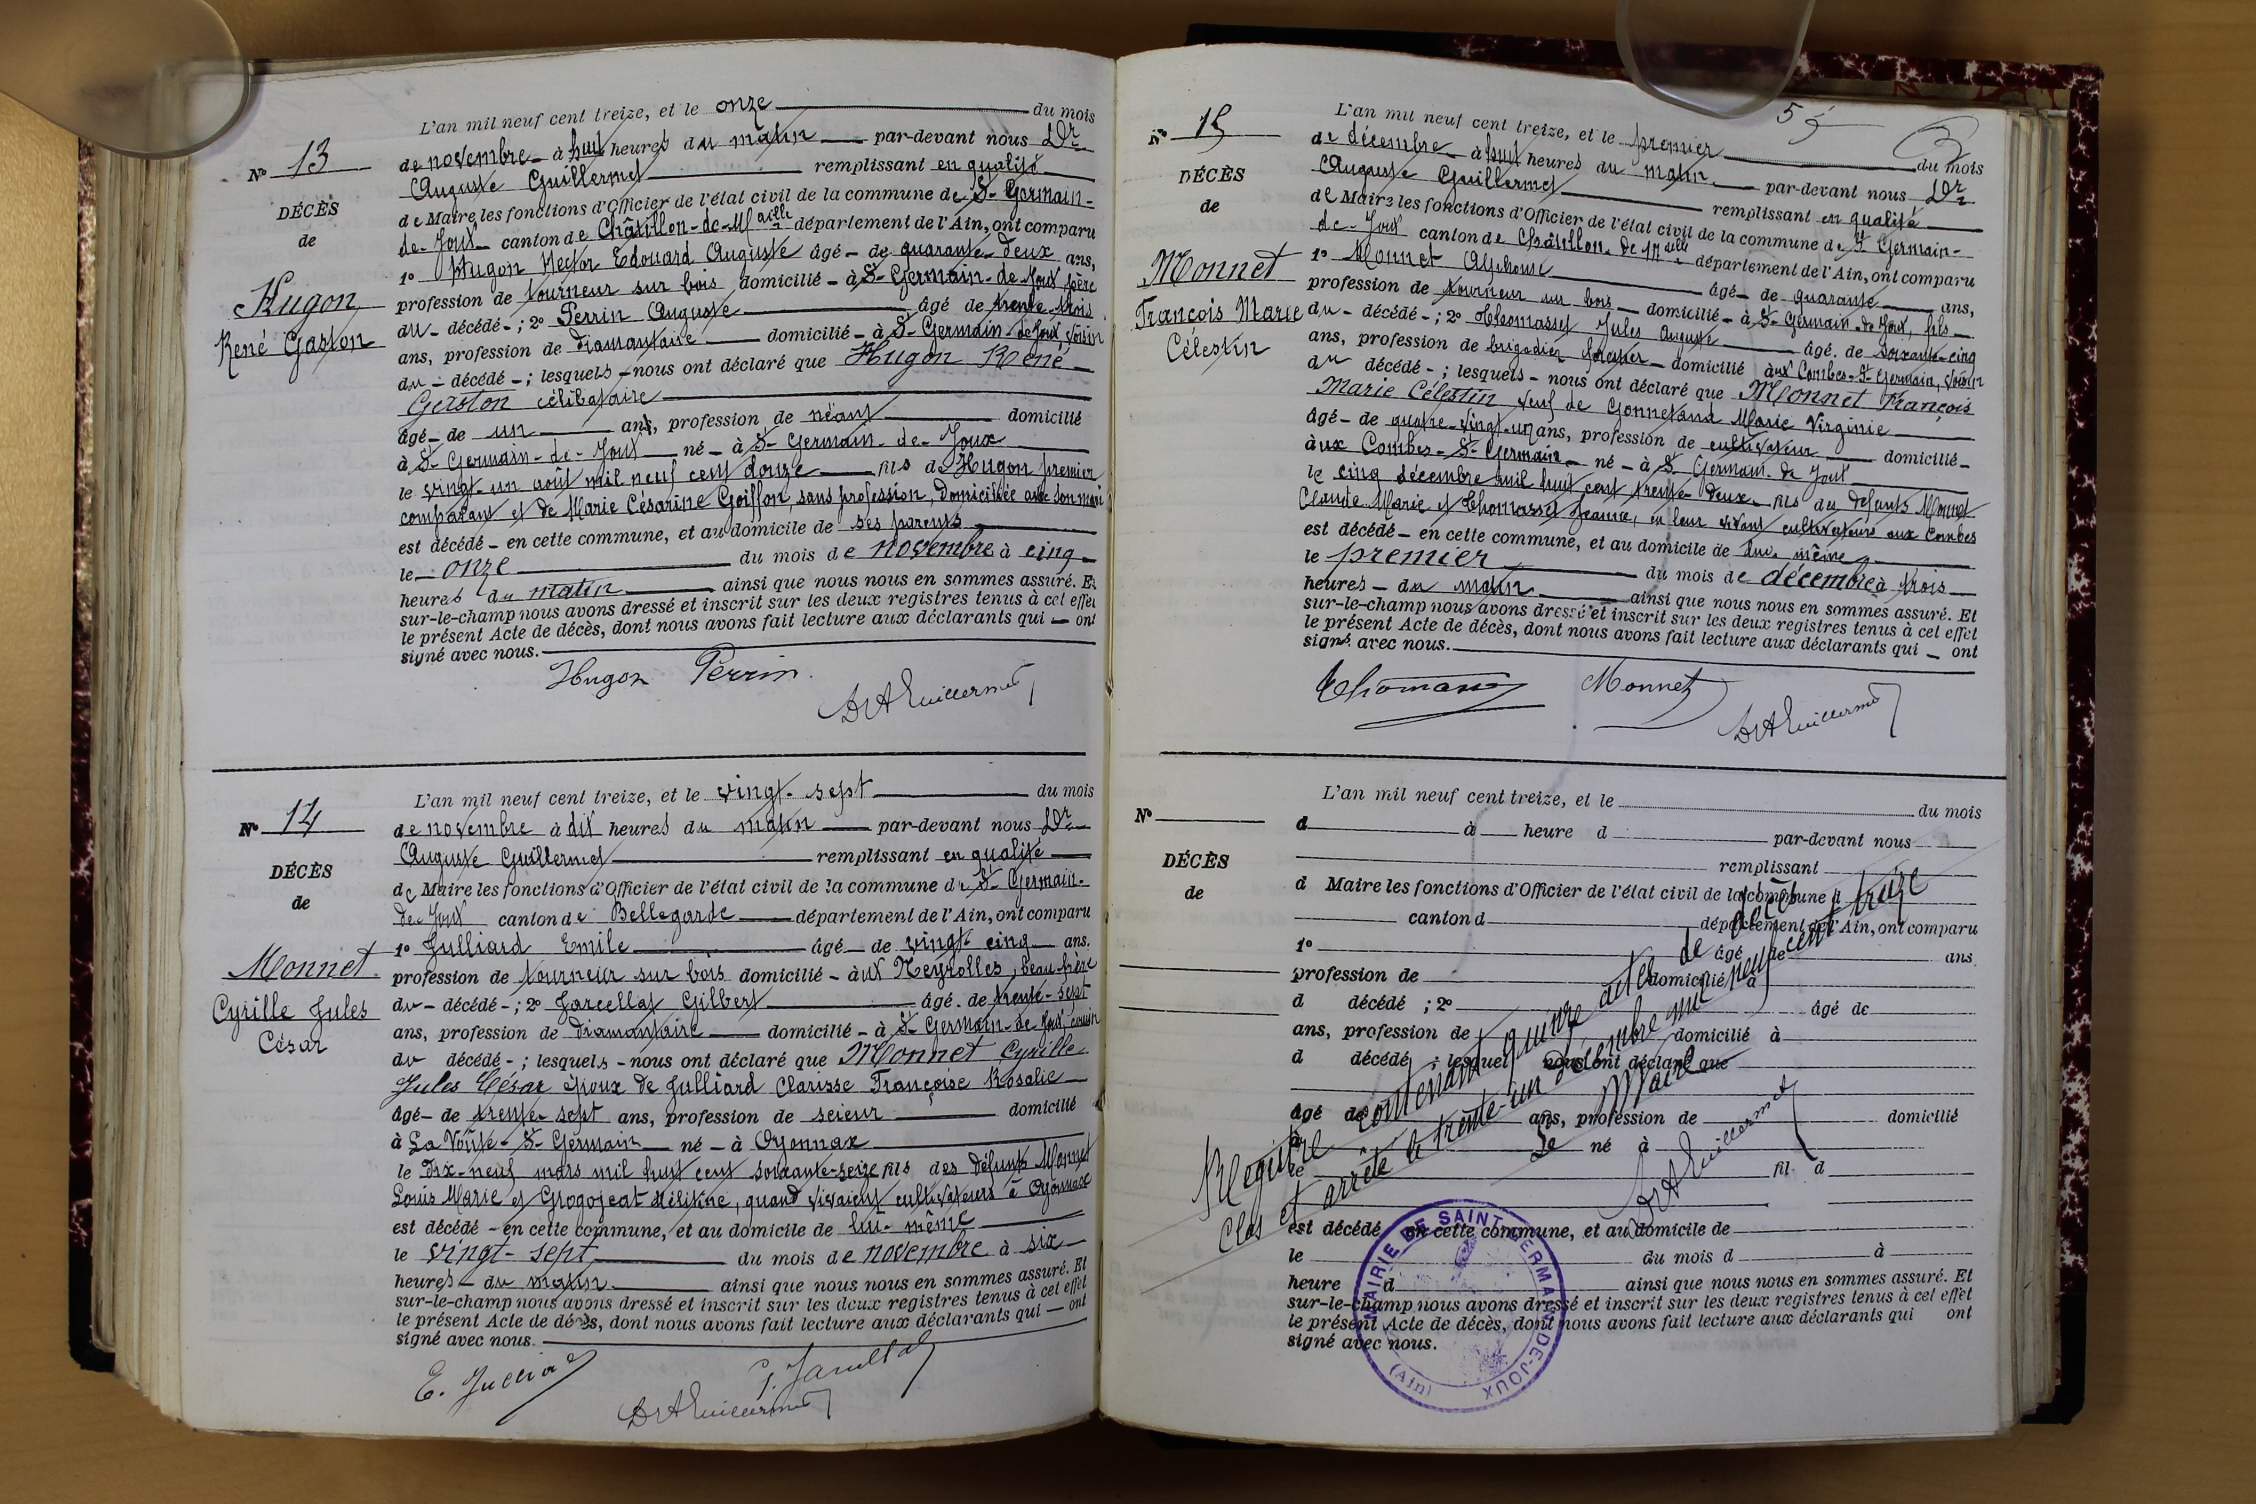 L'an mil neuf cent treize, et le onze du mois
N° 13
de novembre à huit heures du matin par-devant nous Dr
Auguste Guillermet remplissant en qualité
DÉCÈS
de Maire les fonctions d'Officier de l'état civil de la commune de St Germain-
de
de-Joux canton de Châtillon-de-Maille département de l'Ain, ont comparu
1° Hugon Hector Edouard Auguste âgé de quarante-deux ans,
Hugon
profession de tourneur sur bois domicilié à St Germain-de-Joux, père
du décédé; 2° Perrin Auguste âgé de trente-trois
René Gaston
ans, profession de diamantaire domicilié à St Germain de Joux, voisin
du décédé; lesquels nous ont déclaré que Hugon René
Gaston célibataire
âgé de un ans, profession de néant domicilié
à St Germain-de-Joux né à St Germain-de-Joux
le vingt-un août mil neuf cent douze fils de Hugon premier
comparant et de Marie Césarine Goiffon, sans profession, domiciliée avec son mari
est décédé en cette commune, et au domicile de ses parents
le onze du mois de novembre à cinq
heures du matin ainsi que nous nous en sommes assuré. Et
sur-le-champ nous avons dressé et inscrit sur les deux registres tenus à cet effet
le présent Acte de décès, dont nous avons fait lecture aux déclarants qui ont
signé avec nous.
Hugon Perrin
Dr A Guillermet
L'an mil neuf cent treize, et le vingt-sept du mois
N° 14
de novembre à dix heures du matin par-devant nous Dr
Auguste Guillermet remplissant en qualité
DÉCÈS
de Maire les fonctions d'Officier de l'état civil de la commune de St Germain-
de
de Joux canton de Bellegarde département de l'Ain, ont comparu
1° Julliard Emile âgé de vingt cinq ans.
Monnet
profession de tourneur sur bois domicilié aux Neyrolles, beau-frère
Cyrille Jules
du décédé; 2° Jarcellat Gilbert âgé de trente-sept
César
ans, profession de diamantaire domicilié à St Germain-de-Joux, cousin
du décédé; lesquels nous ont déclaré que Monnet Cyrille
Jules César époux de Julliard Clarisse Françoise Rosalie
âgé de trente-sept ans, profession de scieur domicilié
à La Voûte-St Germain né à Oyonnax
le dix-neuf mars mil huit cent soixante-seize fils des défunts Monnet
Louis Marie et Grogojeat Mélitine, quand vivaient cultivateurs à Oyonnax
est décédé en cette commune, et au domicile de lui-même
le vingt-sept du mois de novembre à six
heures du matin ainsi que nous nous en sommes assuré. Et
sur-le-champ nous avons dressé et inscrit sur les deux registres tenus à cet effet
le présent Acte de décès, dont nous avons fait lecture aux déclarants qui ont
signé avec nous.
E. Julliard
Dr A Guillermet
55
L'an mil neuf cent treize, et le premier du mois
N° 15
de décembre à huit heures du matin par-devant nous Dr
Auguste Guillermet remplissant en qualité
DÉCÈS
de Maire les fonctions d'Officier de l'état civil de la commune de St Germain-
de
de-Joux canton de Châtillon-de-Maille département de l'Ain, ont comparu
1° Monnet Alphonse âgé de quarante ans,
Monnet
profession de tourneur sur bois domicilié à St Germain de Joux, fils
François Marie
du décédé; 2° Thomasset Jules Auguste âgé de soixante-cinq
Célestin
ans, profession de brigadier forestier domicilié aux Combes-St Germain, voisin
du décédé; lesquels nous ont déclaré que Monnet François
Marie Célestin veuf de Gonnetand Marie Virginie
âgé de quatre-vingt-un ans, profession de cultivateur domicilié
aux Combes-St Germain né à St Germain de Joux
le cinq décembre mil huit cent trente-deux fils des défunts Monnet
Claude Marie et Thomasset Jeanne, en leur vivant cultivateurs aux Combes
est décédé en cette commune, et au domicile de lui-même
le premier du mois de décembre à trois
heures du matin ainsi que nous nous en sommes assuré. Et
sur-le-champ nous avons dressé et inscrit sur les deux registres tenus à cet effet
le présent Acte de décès, dont nous avons fait lecture aux déclarants qui ont
signé avec nous.
Thomasset Monnet
Dr A Guillermet
L'an mil neuf cent treize, et le du mois
N°
d à heure d par-devant nous
remplissant
DÉCÈS
d Maire les fonctions d'Officier de l'état civil de la commune d
de
canton d département de l'Ain, ont comparu
1° âgé de ans
profession de domicilié à
d décédé ; 2° âgé de
ans, profession de domicilié à
d décédé ; lesquel nous ont déclaré que
âgé de ans, profession de domicilié
à né à
le fil d
est décédé en cette commune, et au domicile de
le du mois d à
heure d ainsi que nous nous en sommes assuré. Et
sur-le-champ nous avons dressé et inscrit sur les deux registres tenus à cet effet
le présent Acte de décès, dont nous avons fait lecture aux déclarants qui ont
signé avec nous.
Registre contenant quinze actes de décès
Clos et arrêté le trente-un décembre mil neuf cent treize
Le Maire
Dr A Guillermet
MAIRIE DE SAINT-GERMAIN-DE-JOUX
(Ain)